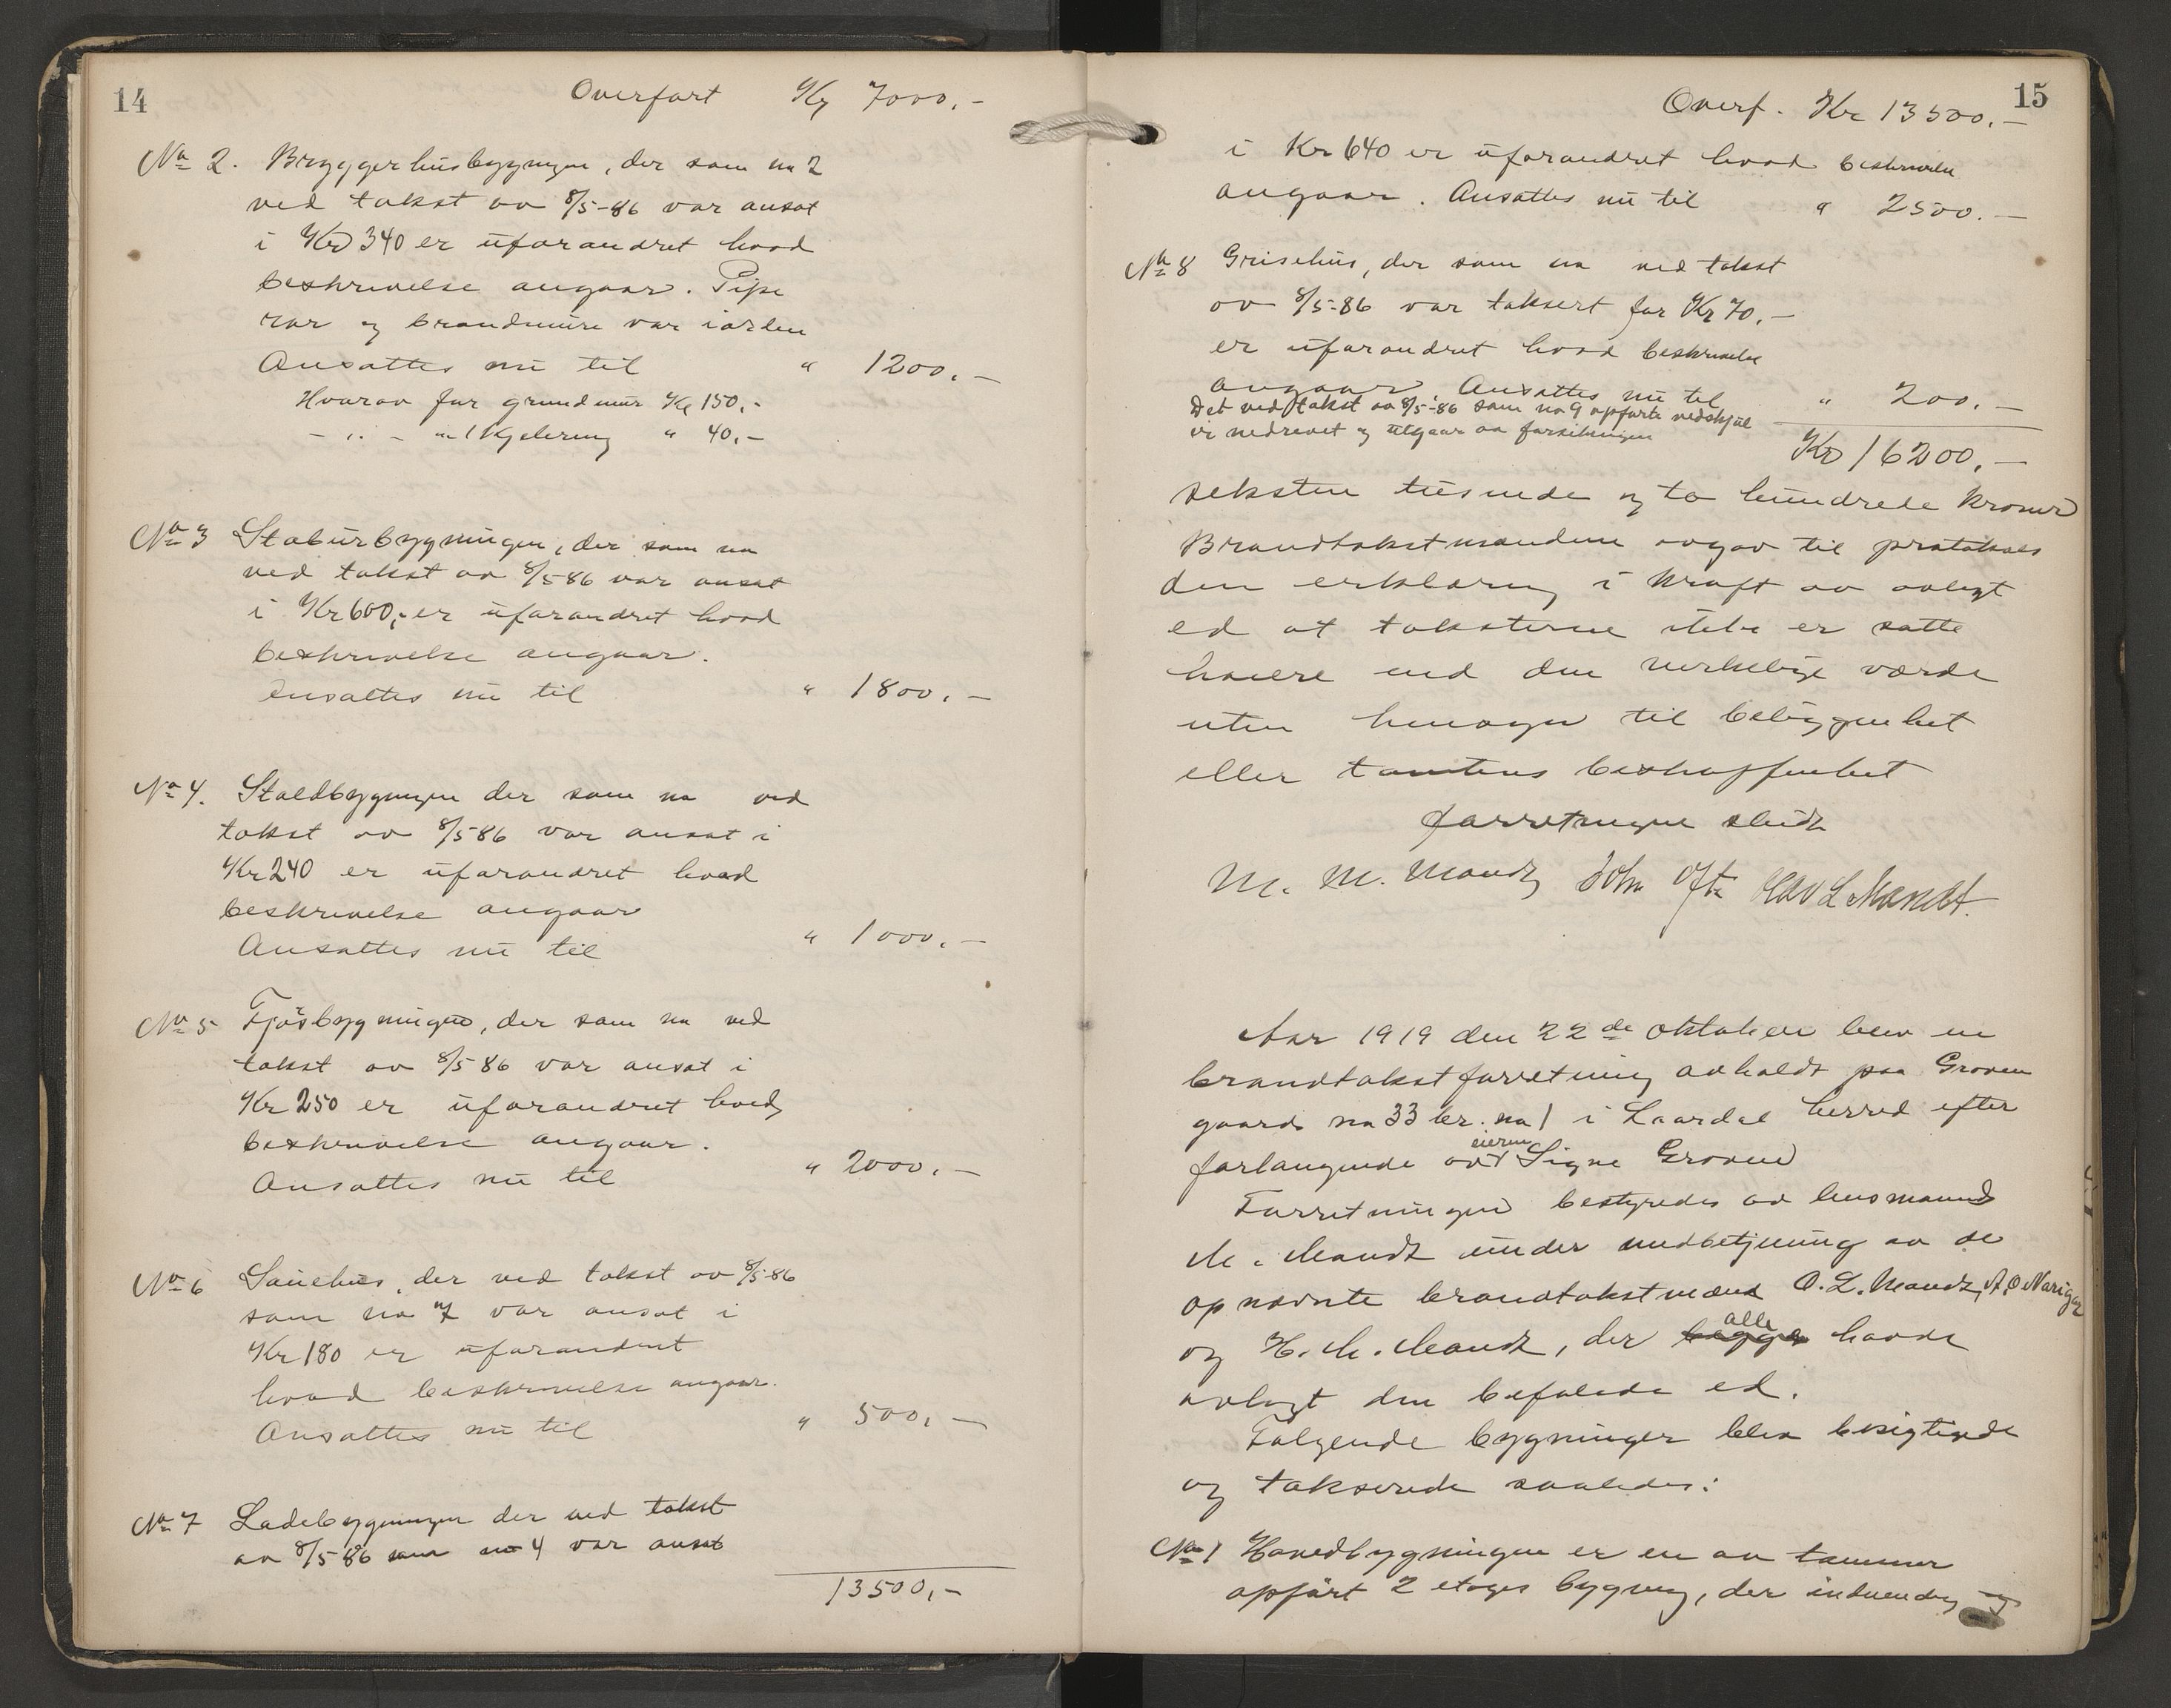 14
Overført Kr 7000.-
No 2. Bryggerhusbygningen, der som no 2
ved takst av 8/5-86 var ansat
i Kr 340 er uforandret hvad
beskrivelse angaar. Pipe
rør og brandmure var i orden
Ansættes nu til " 1200.-
Hvorav for grundmur Kr 150.-
- " - " 1 Kjelering " 40.-
No 3 Staburbygningen, der som no
ved takst av 8/5 86 var ansat
i Kr 600,- er uforandret hvad
beskrivelse angaar.
Ansættes nu til " 1800.-
No 4. Staldbygningen der som no ved
takst av 8/5 86 var ansat i
Kr 240 er uforandret hvad
beskrivelse angaar
Ansættes nu til " 1000.-
No 5 Fjøsbygningen, der som no ved
takst av 8/5 86 var ansat i
Kr 250 er uforandret hvad
beskrivelse angaar.
Ansættes nu til " 2000.-
No 6 Sauehus, der ved takst av 8/5-86
som no 7 var ansat i
Kr 180 er uforandret
hvad beskrivelse angaar.
Ansættes nu til " 500.-
No 7 Ladebygningen der ved takst
av 8/5 86 som no 4 var ansat
13500,-
15
Overf. Kr 13500.-
i Kr 640 er uforandret hvad beskrivelse
angaar. Ansættes nu til " 2500.-
No 8 Grisehus, der som no ved takst
av 8/5-86 var taksert for Kr 70.-
er uforandret hvad beskrivelse
angaar. Ansættes nu til " 200.-
Det ved takst av 8/5-86 som no 9 opførte vedskjul
er nedrevet og utgaar av forsikringen
Kr 16200.-
seksten tusende og to hundrede kroner
Brandtakstmændene avgav til protokols
den erklæring i kraft av avlagt
ed at taksterne ikke er satte
høiere end den virkelige værdi
uten hensyn til beliggenhet
eller tomtens beskaffenhet
Forretningen sluttet
M. M. Mandt John Ofte Olav L Mandt.
Aar 1919 den 22de oktober blev en
brandtakstforretning avholdt paa Groven
gaards no 33 br. no 1 i Laardal herred efter
forlangende av eieren Signe Groven
Forretningen bestyredes av lensmand
M. Mandt under medbetjening av de
opnævnte brandtakstmænd O. L. Mandt, A. O Narigar
og H. M. Mandt, der begge alle havde
avlagt den befalede ed.
Følgende bygninger blev besigtigede
og takserede saaledes:
No 1 Hovedbygningen er en av tømmer
opført 2 etages bygning, der indvendig og